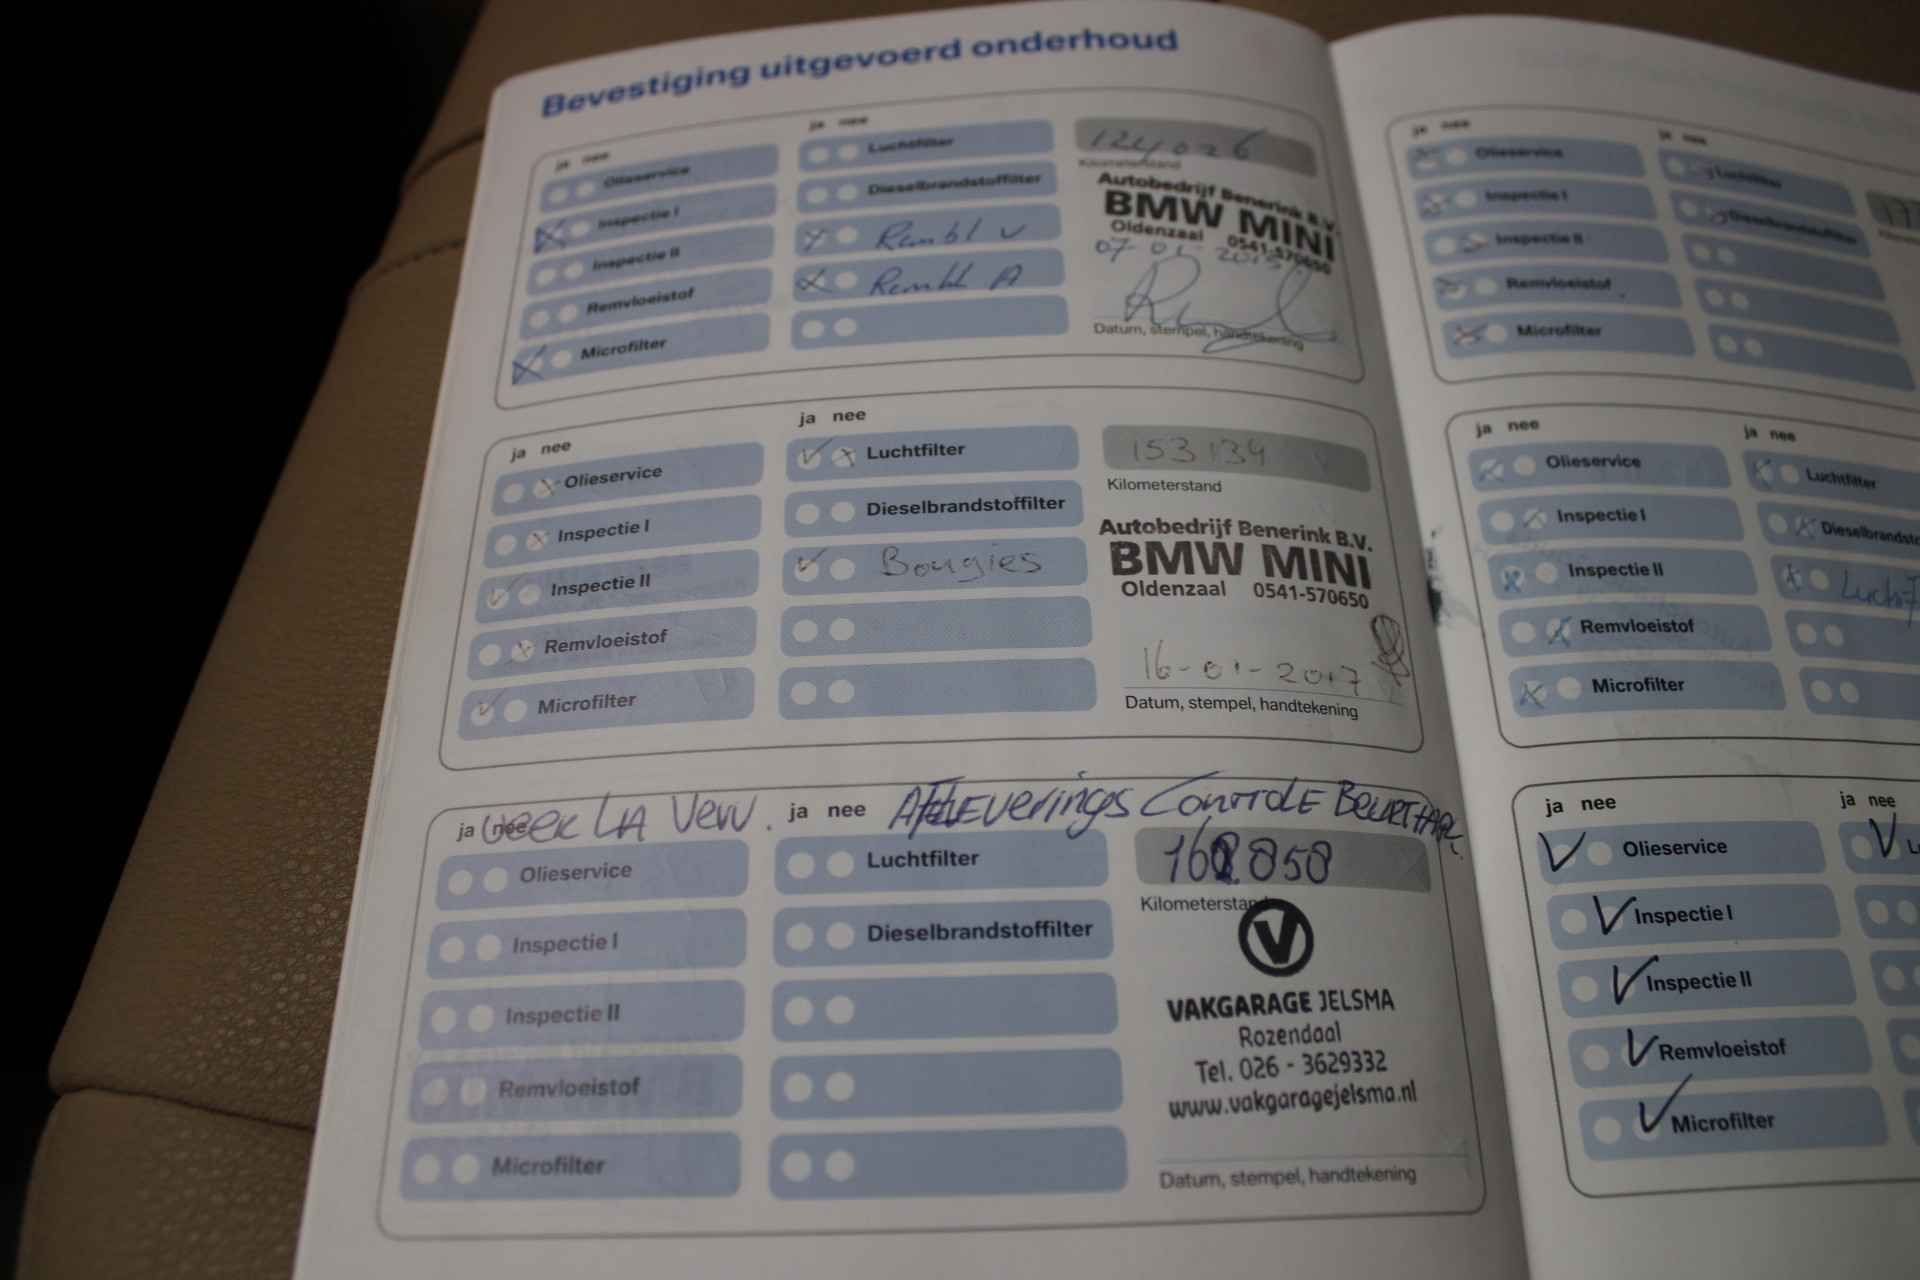 Bevestiging uitgevoerd onderhoud
ja nee
Olieservice
Inspectie I
Inspectie II
Remvloeistof
Microfilter
ja nee
Luchtfilter
Dieselbrandstoffilter
Rembl v
Rembl A
124026
Kilometerstand
Autobedrijf Benerink B.V.
BMW MINI
Oldenzaal 0541-570650
Datum, stempel, handtekening
ja nee
Olieservice
Inspectie I
Inspectie II
Remvloeistof
Microfilter
ja nee
Luchtfilter
Dieselbrandstoffilter
Bougies
153134
Kilometerstand
Autobedrijf Benerink B.V.
BMW MINI
Oldenzaal 0541-570650
16-01-2017
Datum, stempel, handtekening
ja nee
Olieservice
Inspectie I
Inspectie II
Remvloeistof
Microfilter
ja nee
Controle
Luchtfilter
Dieselbrandstoffilter
Kilometerstand
V
VAKGARAGE JELSMA
Rozendaal
Tel. 026 - 3629332
www.vakgaragejelsma.nl
Datum, stempel, handtekening
ja nee
Olieservice
Inspectie I
Inspectie II
Remvloeistof
Microfilter
ja nee
Luchtfilter
Dieselbrandstoffilter
ja nee
Olieservice
Inspectie I
Inspectie II
Remvloeistof
Microfilter
ja nee
Luchtfilter
ja nee
Olieservice
Inspectie I
Inspectie II
Remvloeistof
Microfilter
ja nee